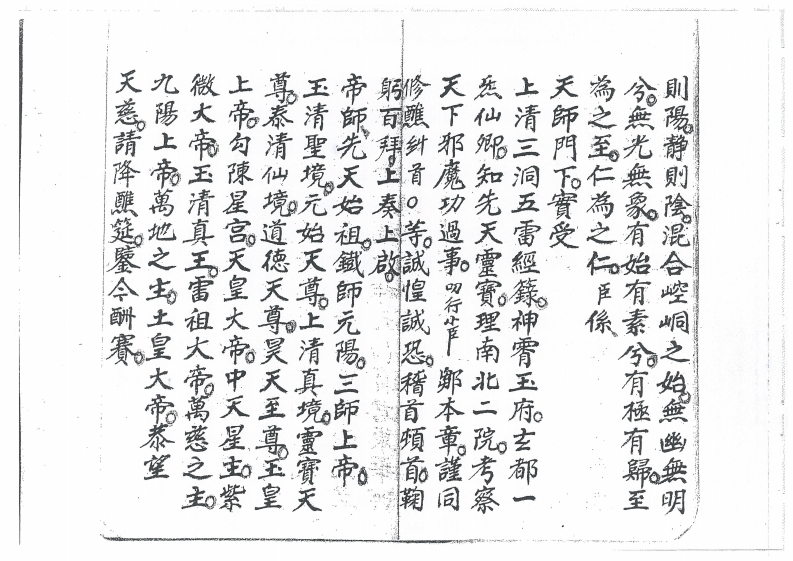 則陽。静則陰。混合崆峒之始。無幽無明
兮。無光無象。有始有素兮。有極有歸。至
為之至。仁為之仁。臣係
天師門下。實受
上清三洞五雷經籙。神霄玉府。玄都一
炁仙卿。知先天靈寶。理南北二院。考察
天下邪魔功過事。叨行 鄭本章。謹同
修醮糾首〇等。誠惶誠恐。稽首頓首。鞠
躬百拜。上奏上啟。
帝師先天始祖。鐵師元陽。三師上帝。
玉清聖境。元始天尊。上清真境。靈寶天
尊。泰清仙境。道徳天尊。昊天至尊。玉皇
上帝。勾陳星宮。天皇大帝。中天星主。紫
微大帝。玉清真王。雷祖大帝。萬慈之主。
九陽上帝。萬地之主。土皇大帝。恭望
天慈。請降醮筵。鑒今酬賽。